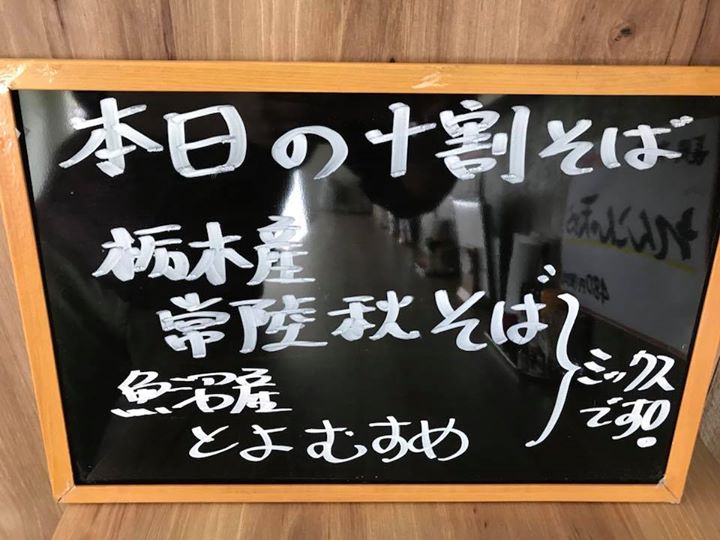 本日の十割そば
栃木産
常陸秋そば
魚沼産
とよむすめ
ミックス
です!